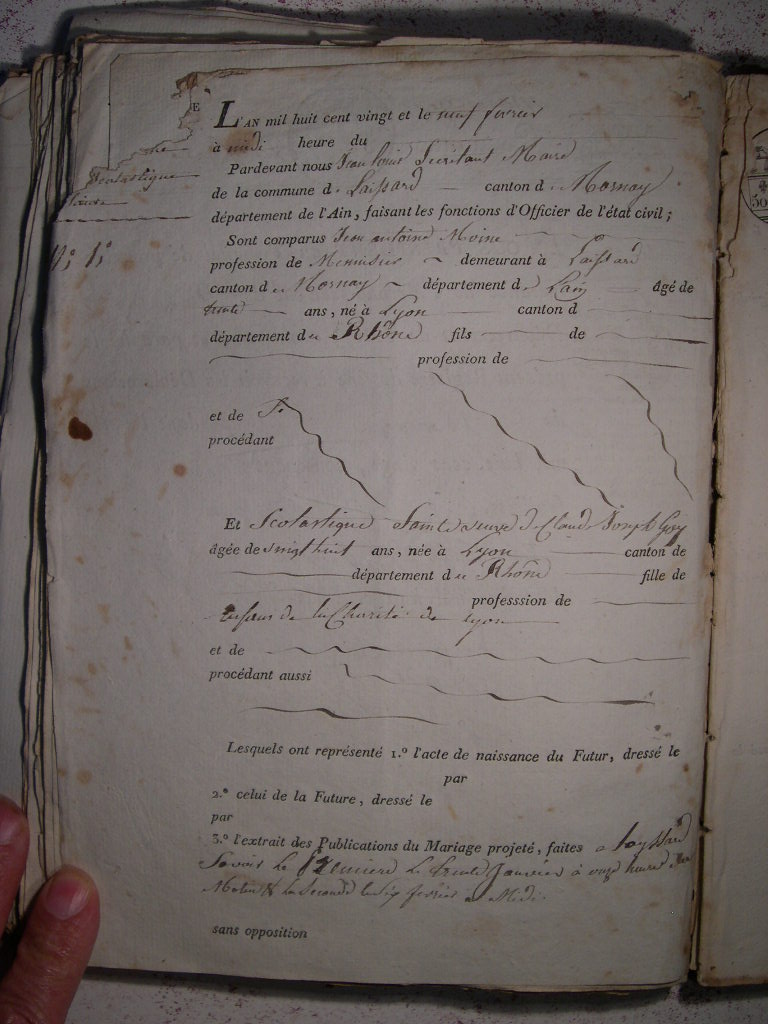 E
L'AN mil huit cent vingt et le neuf fevrier
à midi heure du
Scolastique
Pardevant nous Jean Louis Maire
de la commune de Laissard canton de Mornay
département de l'Ain, faisant les fonctions d'Officier de l'état civil;
Sont comparus Jean antoine Moine
N.º 1.º
profession de Menuisier demeurant à Laissard
canton de Mornay département de L'ain âgé de
trente ans, né à Lyon canton d
département du Rhône fils de
profession de
et de
procédant
Et Scolastique Sainte veuve de Claude Joseph Goy
âgée de vingt huit ans, née à Lyon canton de
département du Rhône fille de
professsion de
enfans de la Charité de Lyon
et de
procédant aussi
Lesquels ont représenté 1.º l'acte de naissance du Futur, dressé le
par
2.º celui de la Future, dressé le
par
3.º l'extrait des Publications du Mariage projeté, faites a Layssard
Savoir Le Premiere Le trente Janvier à onze heure du
Matin & la Seconde le six fevrier a Midi.
sans opposition